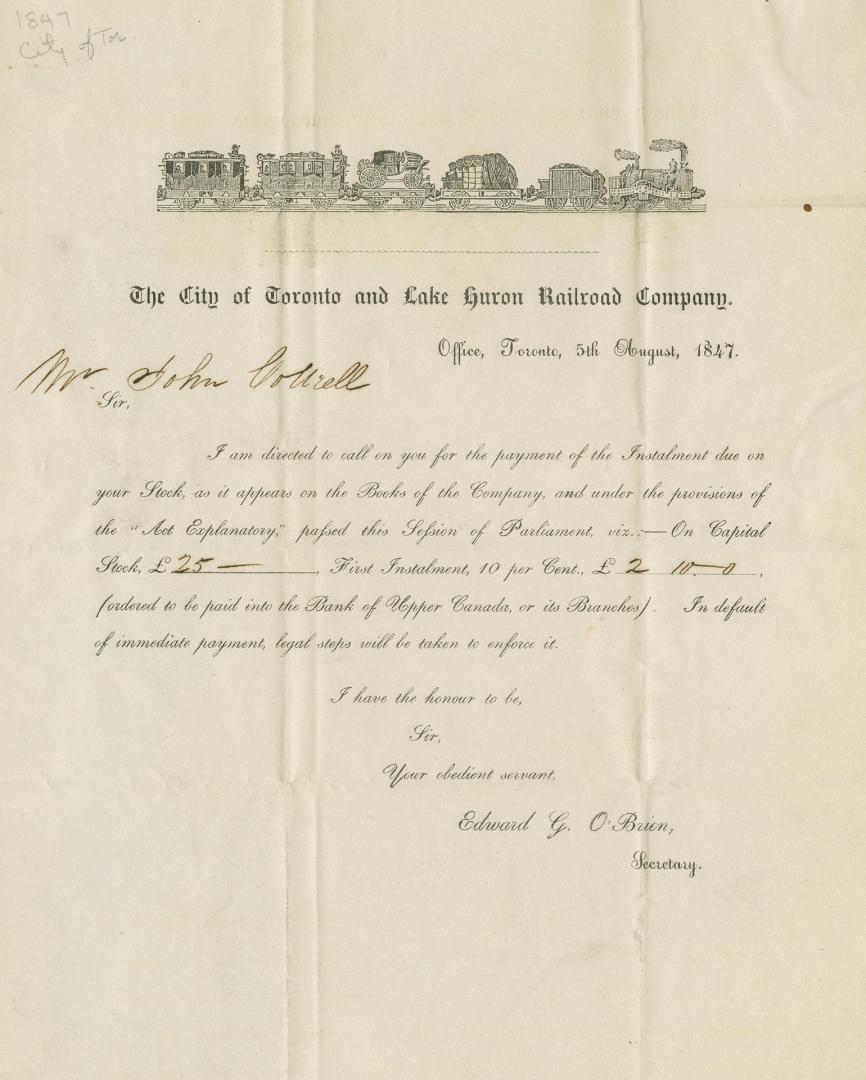 1847
City of Tor.
The City of Toronto and Lake Huron Railroad Company.
Office, Toronto, 5th August, 1847.
Mr John Cottrell
Sir,
I am directed to call on you for the payment of the Instalment due on
your Stock, as it appears on the Books of the Company, and under the provisions of
the "Act Explanatory," paſsed this Seſsion of Parliament, viz.:—On Capital
Stock, £ 25 — , First Instalment, 10 per Cent., £ 2 10 — 0 ,
(ordered to be paid into the Bank of Upper Canada, or its Branches). In default
of immediate payment, legal steps will be taken to enforce it.
I have the honour to be,
Sir,
Your obedient servant,
Edward G. O'Brien,
Secretary.